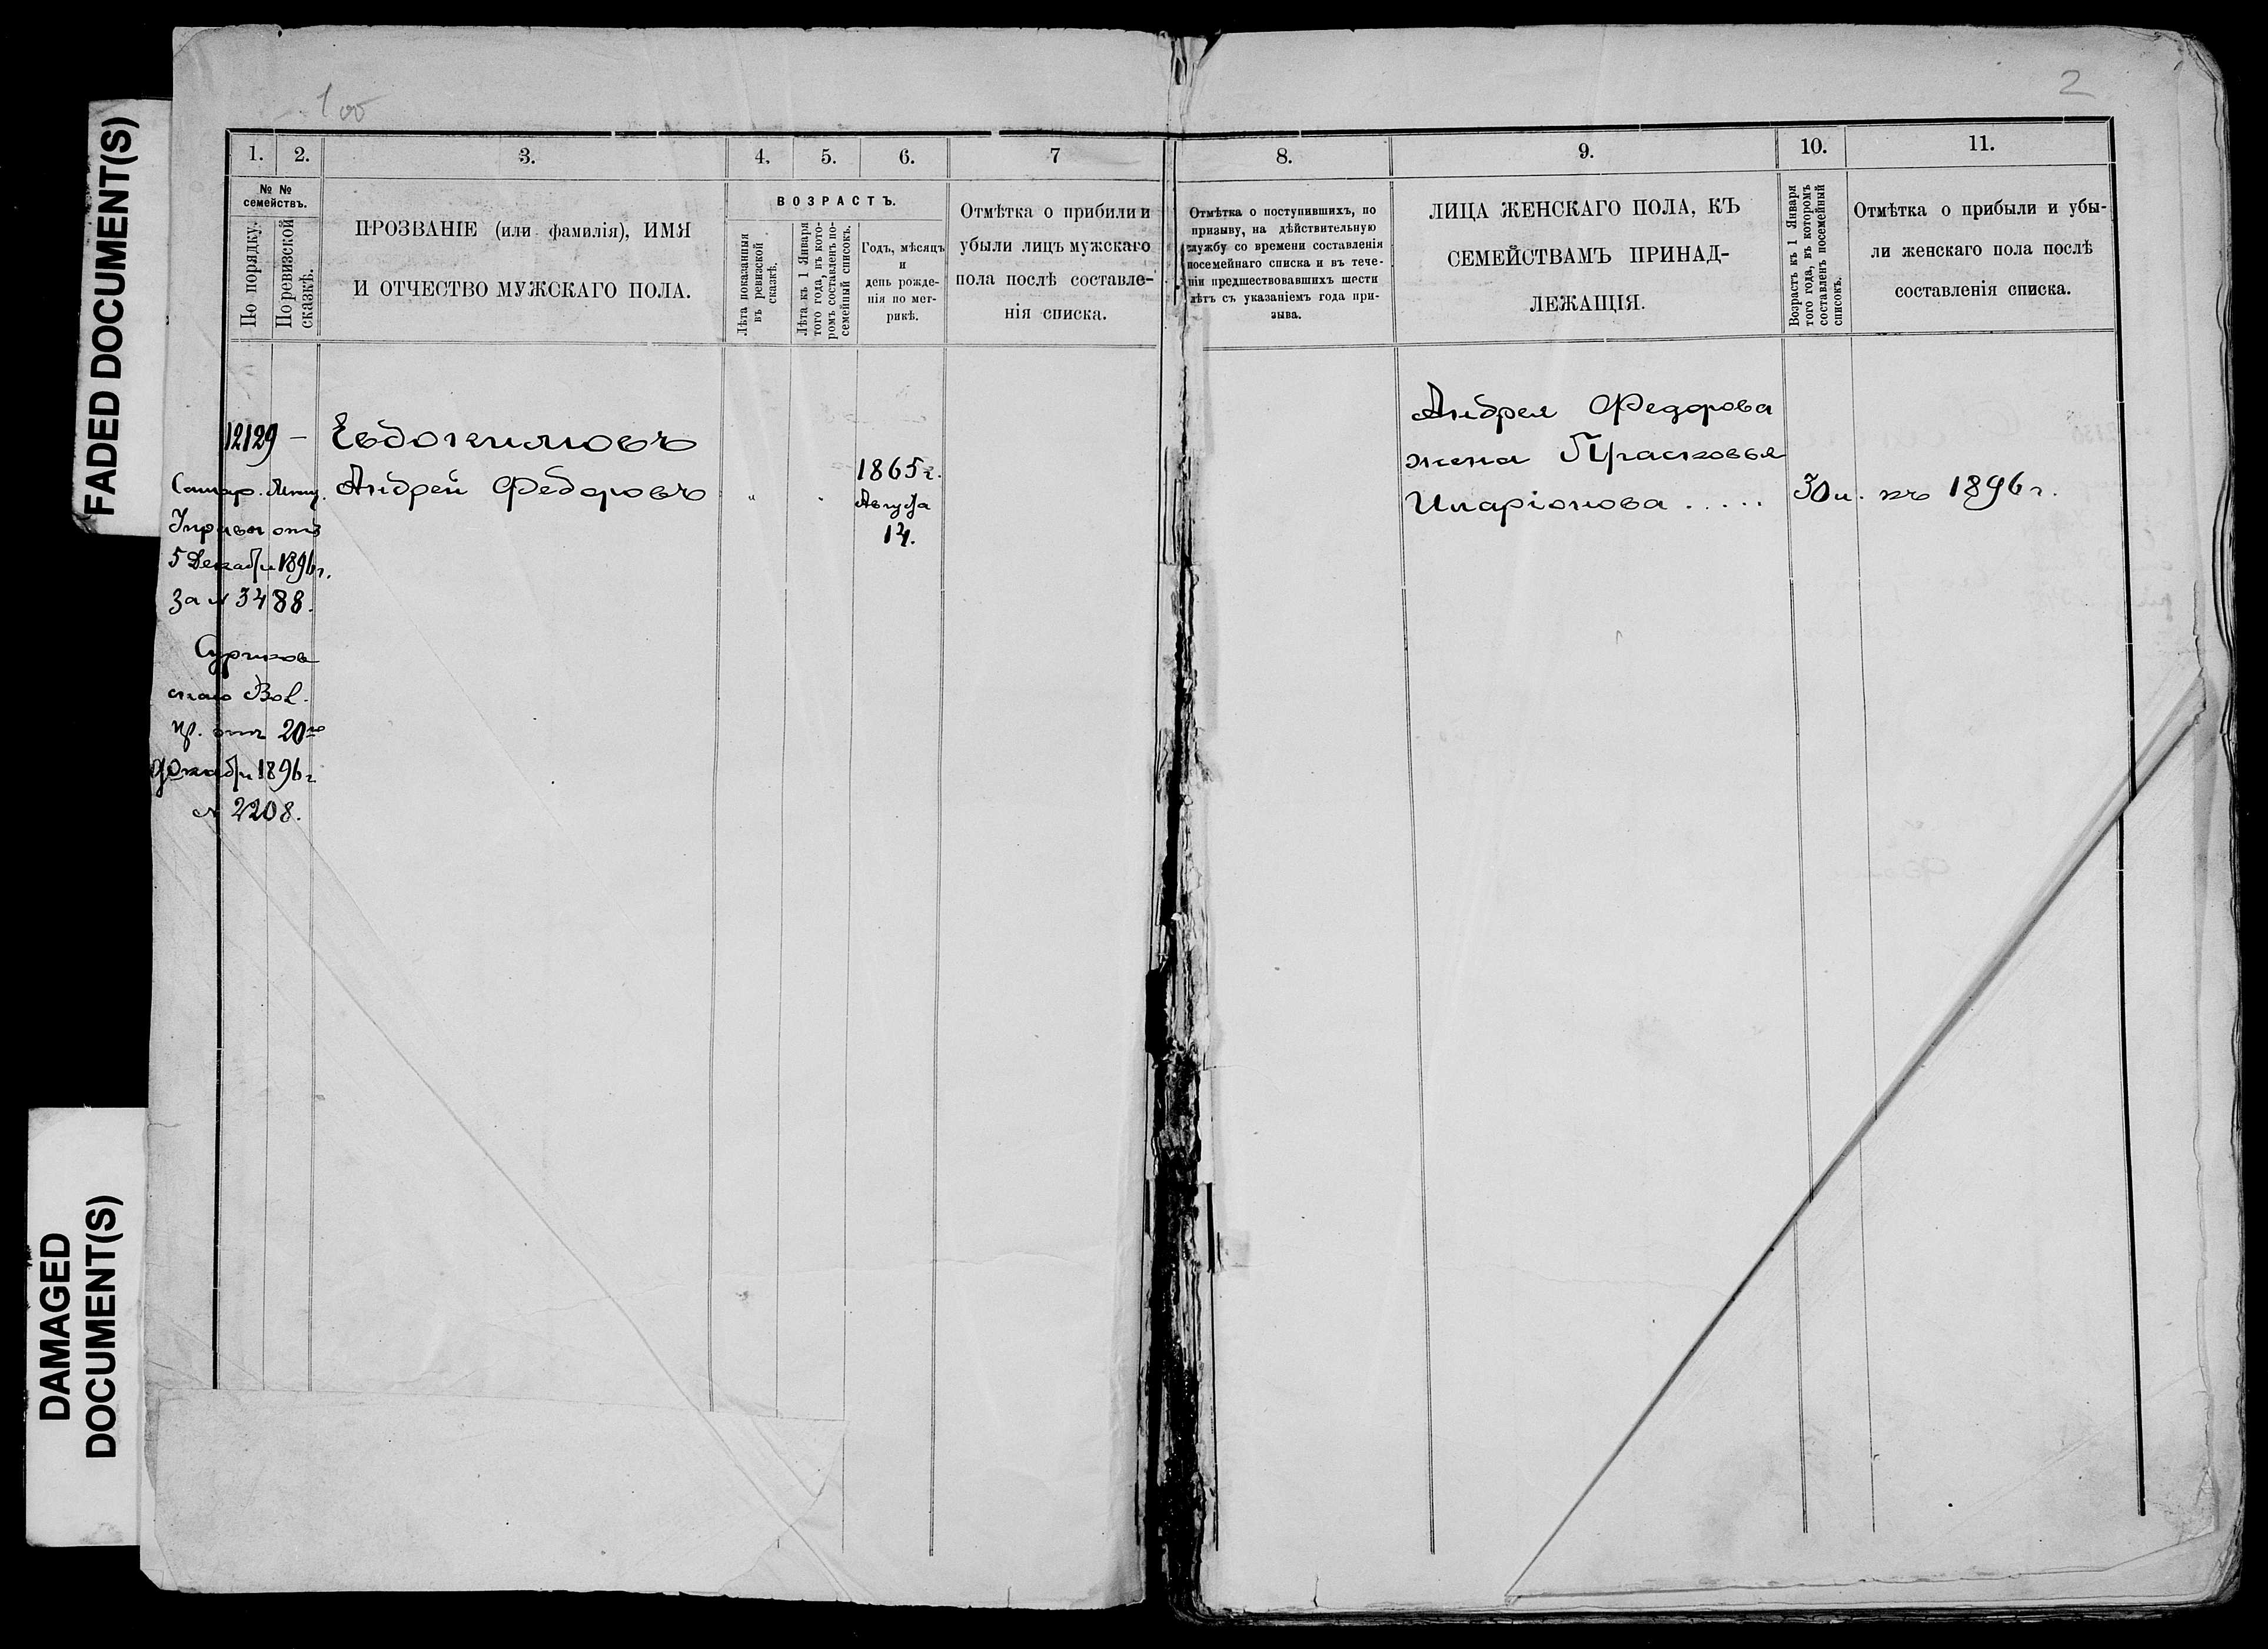 FADED DOCUMENT(S)
DAMAGED
DOCUMENT(S)
100
1.
2.
3.
4.
5.
6.
7
№ №
семействъ.
По порядку.
По ревизской
сказкѣ.
ПРОЗВАНІЕ (или фамилія), ИМЯ
И ОТЧЕСТВО МУЖСКАГО ПОЛА.
ВОЗРАСТЪ.
Лѣта показанныя
въ ревизской
сказкѣ.
Лѣта къ 1 Января
того года, въ кото-
ромъ составленъ по-
семейный списокъ.
Годъ, мѣсяцъ
и
день рожде-
нія по мет-
рикѣ.
Отмѣтка о прибили и
убыли лицъ мужскаго
пола послѣ составле-
нія списка.
12129 — Евдокимовъ
Андрей Федоровъ
1865 г.
Августа
14.
Самар.
Управы отъ
5 Декабря 1896 г.
За № 3488.
Суриков
скаго Вол.
пр. отъ 20го
Декабря 1896 г
№ 2208.
2
8.
9.
10.
11.
Отмѣтка о поступившихъ, по
призыву, на дѣйствительную
службу со времени составленія
посемейнаго списка и въ тече-
ніи предшествовавшихъ шести
лѣтъ съ указаніемъ года при-
зыва.
ЛИЦА ЖЕНСКАГО ПОЛА, КЪ
СЕМЕЙСТВАМЪ ПРИНАД-
ЛЕЖАЩІЯ.
Возрастъ къ 1 Января
того года, въ которомъ
составленъ посемейный
списокъ.
Отмѣтка о прибыли и убы-
ли женскаго пола послѣ
составленія списка.
Андрея Федорова
жена Прасковья
Иларіонова ..... 30 л. къ 1896 г.